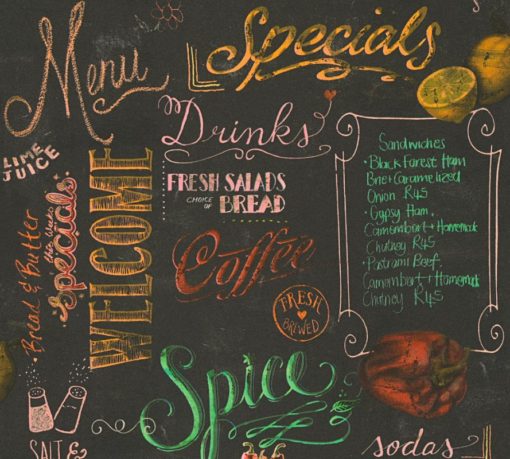 Menu
Specials
LIME
JUICE
Drinks
WELCOME
Bread & Butter
this weeks
Specials
FRESH SALADS
CHOICE
OF
BREAD
Coffee
FRESH
BREWED
Sandwiches
• Black Forest Ham
Brie + Caramelized
Onion R45
• Gypsy Ham,
Camembort + Homemak
Chutney R45
• Pastrami Beef,
Camembort + Homemak
Chutney R45
Spice
SALT &
sodas